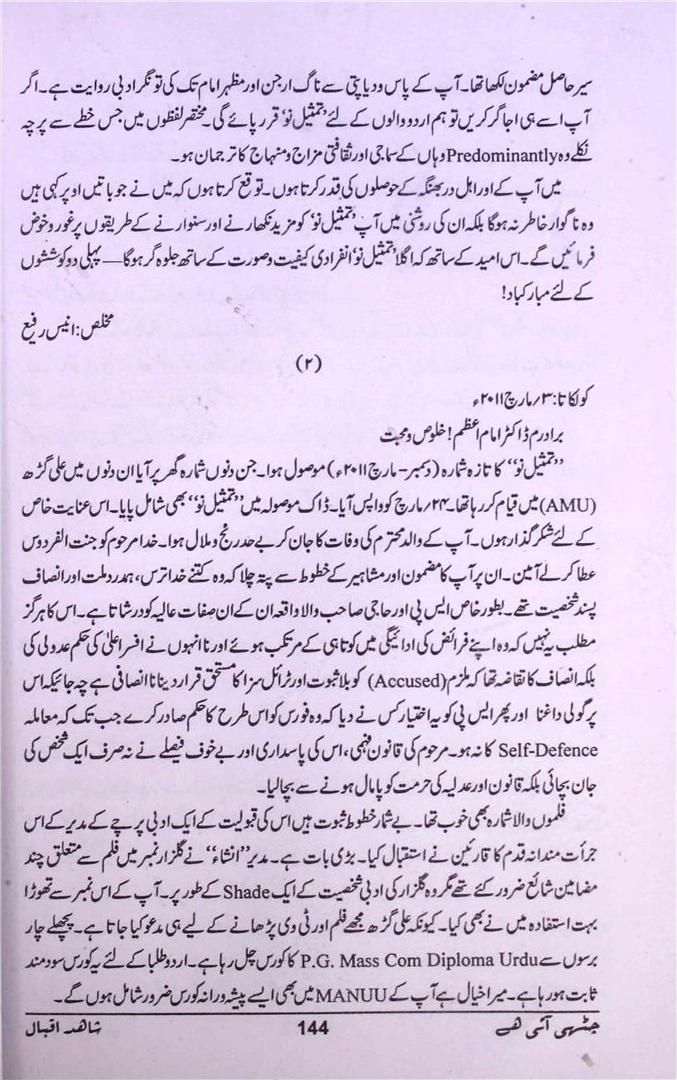 سیر حاصل مضمون لکھا تھا۔ آپ کے پاس ودیاپتی سے ناگ ارجن اور مظہر امام تک کی تونگر ادبی روایت ہے۔ اگر
آپ اسے ہی اجاگر کریں تو ہم اردو والوں کے لئے ’تمثیل نو‘ قرر پائے گی۔ مختصر لفظوں میں جس خطے سے پرچہ
نکلے وہ Predominantly وہاں کے سماجی اور ثقافتی مزاج و منہاج کا ترجمان ہو۔
میں آپ کے اور اہل دربھنگہ کے حوصلوں کی قدر کرتا ہوں۔ توقع کرتا ہوں کہ میں نے جو باتیں اوپر کہی ہیں
وہ ناگوار خاطر نہ ہوگا بلکہ ان کی روشنی میں آپ ’تمثیل نو‘ کو مزید نکھارنے اور سنوارنے کے طریقوں پر غور و خوض
فرمائیں گے۔ اس امید کے ساتھ کہ اگلا ’تمثیل نو‘ انفرادی کیفیت و صورت کے ساتھ جلوہ گر ہوگا — پہلی دو کوششوں
کے لئے مبارکباد!
مخلص: انیس رفیع
(۲)
کولکاتا: ۳/مارچ ۲۰۱۱ء
برادرم ڈاکٹر امام اعظم! خلوص و محبت
’’تمثیل نو‘‘ کا تازہ شمارہ (دسمبر - مارچ ۲۰۱۱ء) موصول ہوا۔ جن دنوں شمارہ گھر پر آیا ان دنوں میں علی گڑھ
(AMU) میں قیام کررہا تھا۔ ۲۴/مارچ کو واپس آیا۔ ڈاک موصولہ میں ’’تمثیل نو‘‘ بھی شامل پایا۔ اس عنایت خاص
کے لئے شکر گذار ہوں۔ آپ کے والد محترم کی وفات کا جان کر بے حد رنج و ملال ہوا۔ خدا مرحوم کو جنت الفردوس
عطا کرلے آمین۔ ان پر آپ کا مضمون اور مشاہیر کے خطوط سے پتہ چلا کہ وہ کتنے خدا ترس، ہمدرد ملت اور انصاف
پسند شخصیت تھے۔ بطور خاص ایس پی اور حاجی صاحب والا واقعہ ان کے ان صفات عالیہ کو درشاتا ہے۔ اس کا ہرگز
مطلب یہ نہیں کہ وہ اپنے فرائض کی ادائیگی میں کوتاہی کے مرتکب ہوئے اور نا انہوں نے افسر اعلیٰ کی حکم عدولی کی
بلکہ انصاف کا تقاضہ تھا کہ ملزم (Accused) کو بلا ثبوت اور ٹرائل سزا کا مستحق قرار دینا نا انصافی ہے چہ جائیکہ اس
پر گولی داغنا اور پھر ایس پی کو یہ اختیار کس نے دیا کہ وہ فورس کو اس طرح کا حکم صادر کرے جب تک کہ معاملہ
Self-Defence کا نہ ہو۔ مرحوم کی قانون فہمی، اس کی پاسداری اور بے خوف فیصلے نے نہ صرف ایک شخص کی
جان بچائی بلکہ قانون اور عدلیہ کی حرمت کو پامال ہونے سے بچالیا۔
فلموں والا شمارہ بھی خوب تھا۔ بے شمار خطوط ثبوت ہیں اس کی قبولیت کے ایک ادبی پرچے کے مدیر کے اس
جرأت مندانہ قدم کا قارئین نے استقبال کیا۔ بڑی بات ہے۔ مدیر ’’انشاء‘‘ نے گلزار نمبر میں فلم سے متعلق چند
مضامین شائع ضرور کئے تھے مگر وہ گلزار کی ادبی شخصیت کے ایک Shade کے طور پر۔ آپ کے اس نمبر سے تھوڑا
بہت استفادہ میں نے بھی کیا۔ کیونکہ علی گڑھ مجھے فلم اور ٹی وی پڑھانے کے لیے ہی مدعو کیا جاتا ہے۔ پچھلے چار
برسوں سے P.G. Mass Com Diploma Urdu کا کورس چل رہا ہے۔ اردو طلبا کے لئے یہ کورس سود مند
ثابت ہو رہا ہے۔ میرا خیال ہے آپ کے MANUU میں بھی ایسے پیشہ ورانہ کورس ضرور شامل ہوں گے۔
چٹھی آئی ہے 144 شاهد اقبال